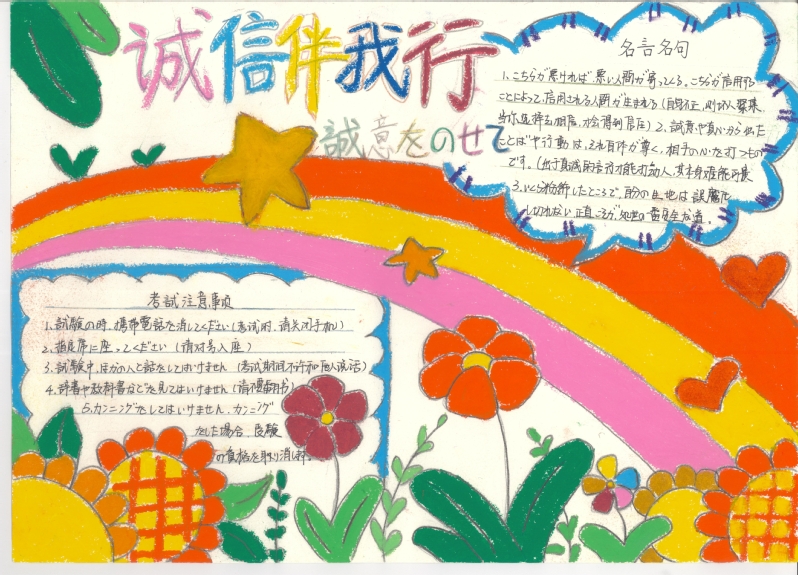 诚信伴我行
誠意をのせて
名言名句
1、こちらが悪ければ、悪い人間が寄ってくる。こちらが信用する
ことによって、信用される人間が生まれる
2、誠意や真心から出た
ことばや行動は、それ自体が尊く、相手の心を打つもの
です。
3、いくら粉飾したところで、自分の
考試注意事項
1、試験の時、携帯電話を消してください(考试时，请关闭手机)
2、指定席に座ってください (请对号入座)
3、試験中、ほかの人と話をしてはいけません (考试期间不许和他人说话)
4、辞書や教科書などを見てはいけません
5、カンニングをしてはいけません、カンニング
をした場合、受験
の資格を取り消します。